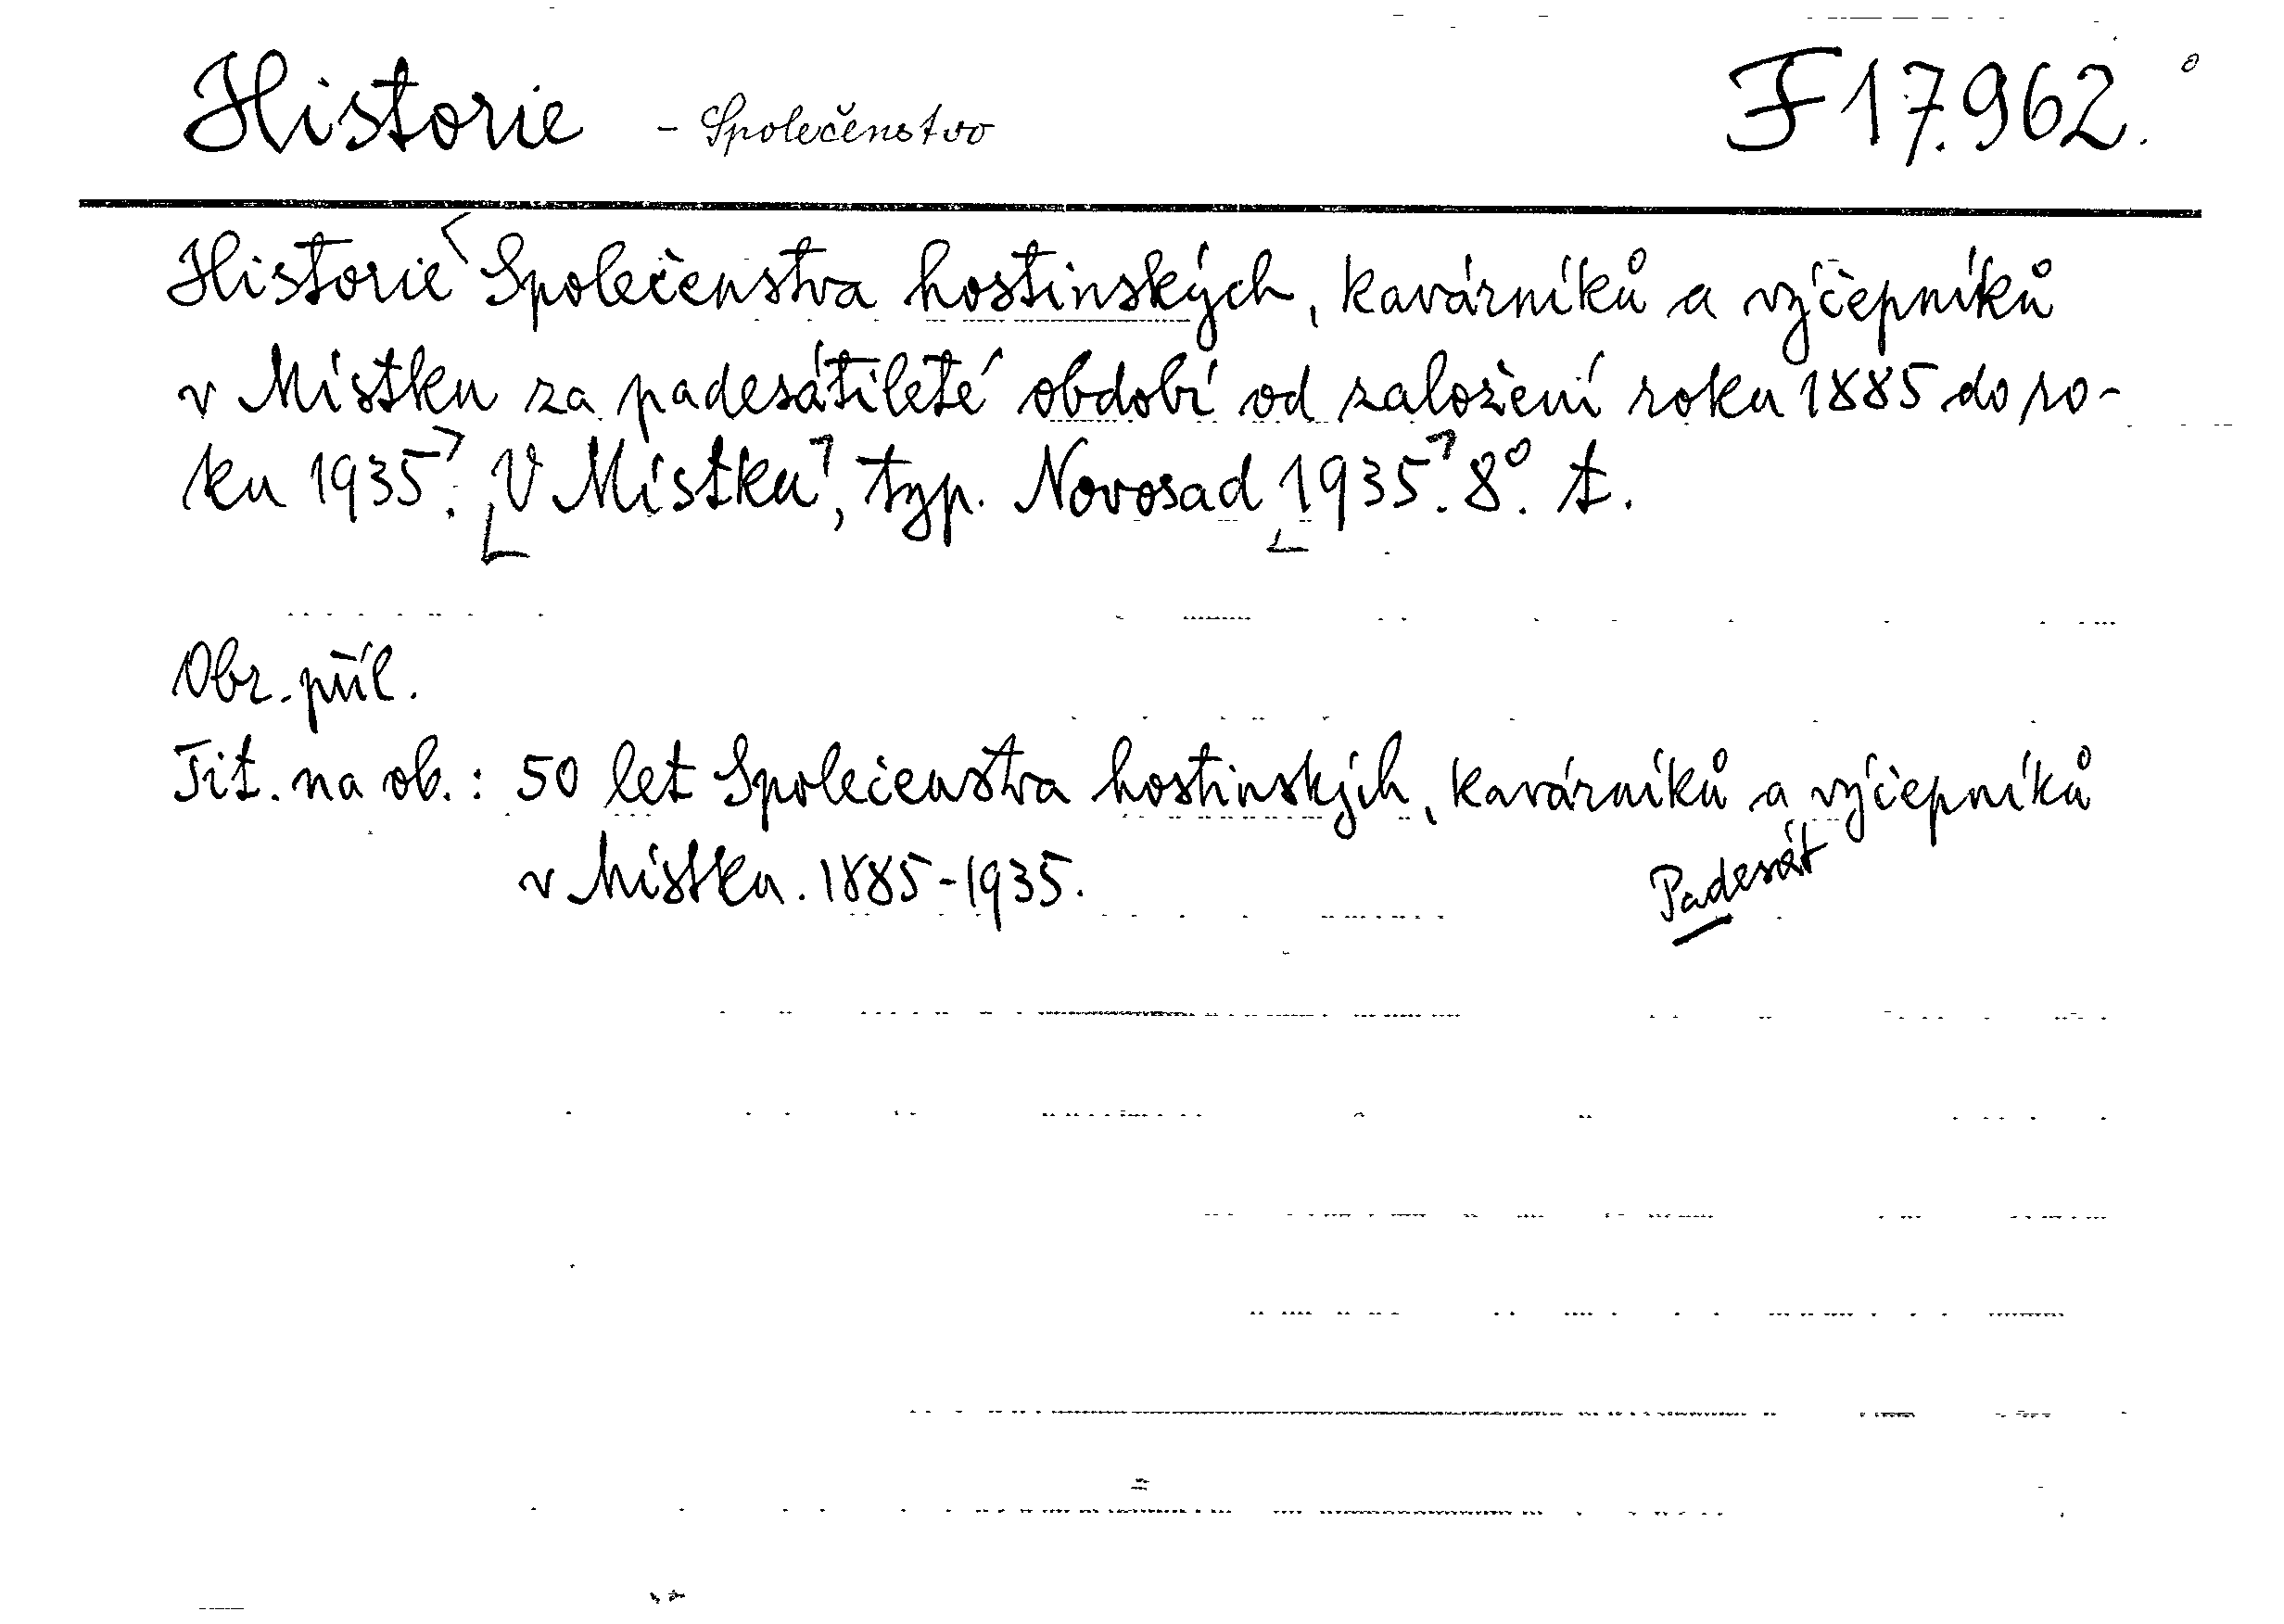 Historie - Společenstvo F 17.962.
Historie Společenstva hostinských, kavárníků a výčepníků
v Místku za padesátileté období od založení roku 1885 do ro-
ku 1935. V Místku, typ. Novosad 1935. 8°. t.
Obr. příl.
Tit. na ob.: 50 let Společenstva hostinských, kavárníků a výčepníků
v Místku. 1885-1935.
Padesát